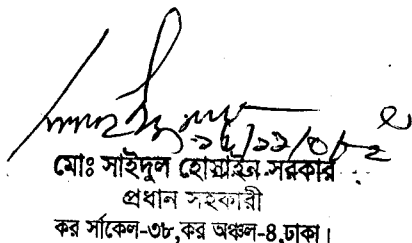 মোঃ সাইদুল হোসাইন সরকার
প্রধান সহকারী
কর সার্কেল-৩৮,কর অঞ্চল-৪,ঢাকা।